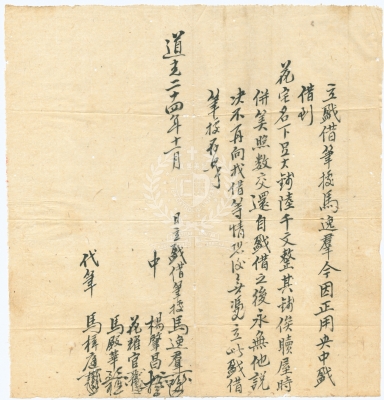 立戤借筆據馬逸羣今因正用央中戤
借到
花宅名下足大錢陸千文整其錢俟贖屋時
併筭照數交還自戤借之後永無他説
决不再向戈借等情恐後無憑立此戤借
筆據存照
道光二十四年十二月 日立戤借筆據馬逸羣
中 楊肇昌
花耀官
馬殿華
代筆 馬梓庭